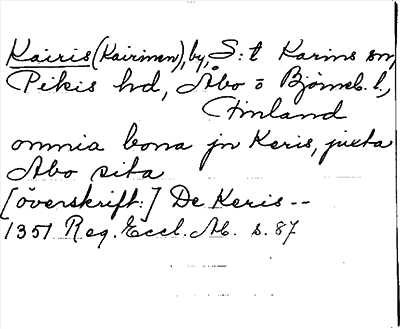 Kairis (Kairinen), by, S:t Karins sn,
Pikis hd, Åbo o Björneb. l.,
Finland
omnia bona jn Keris, juxta
Abo sita
[överskrift:] De Keris --
1351 Reg. Eccl. Ab. s. 87